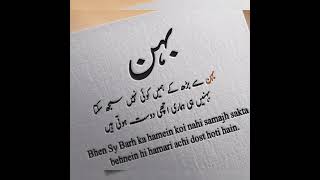 بہن
بہن سے بڑھ کے ہمیں کوئی نہیں سمجھ سکتا
بہنیں ہی ہماری اچھی دوست ہوتی ہیں
Bhen Sy Barh ka hamein koi nahi samajh sakta
behnein hi hamari achi dost hoti hain.